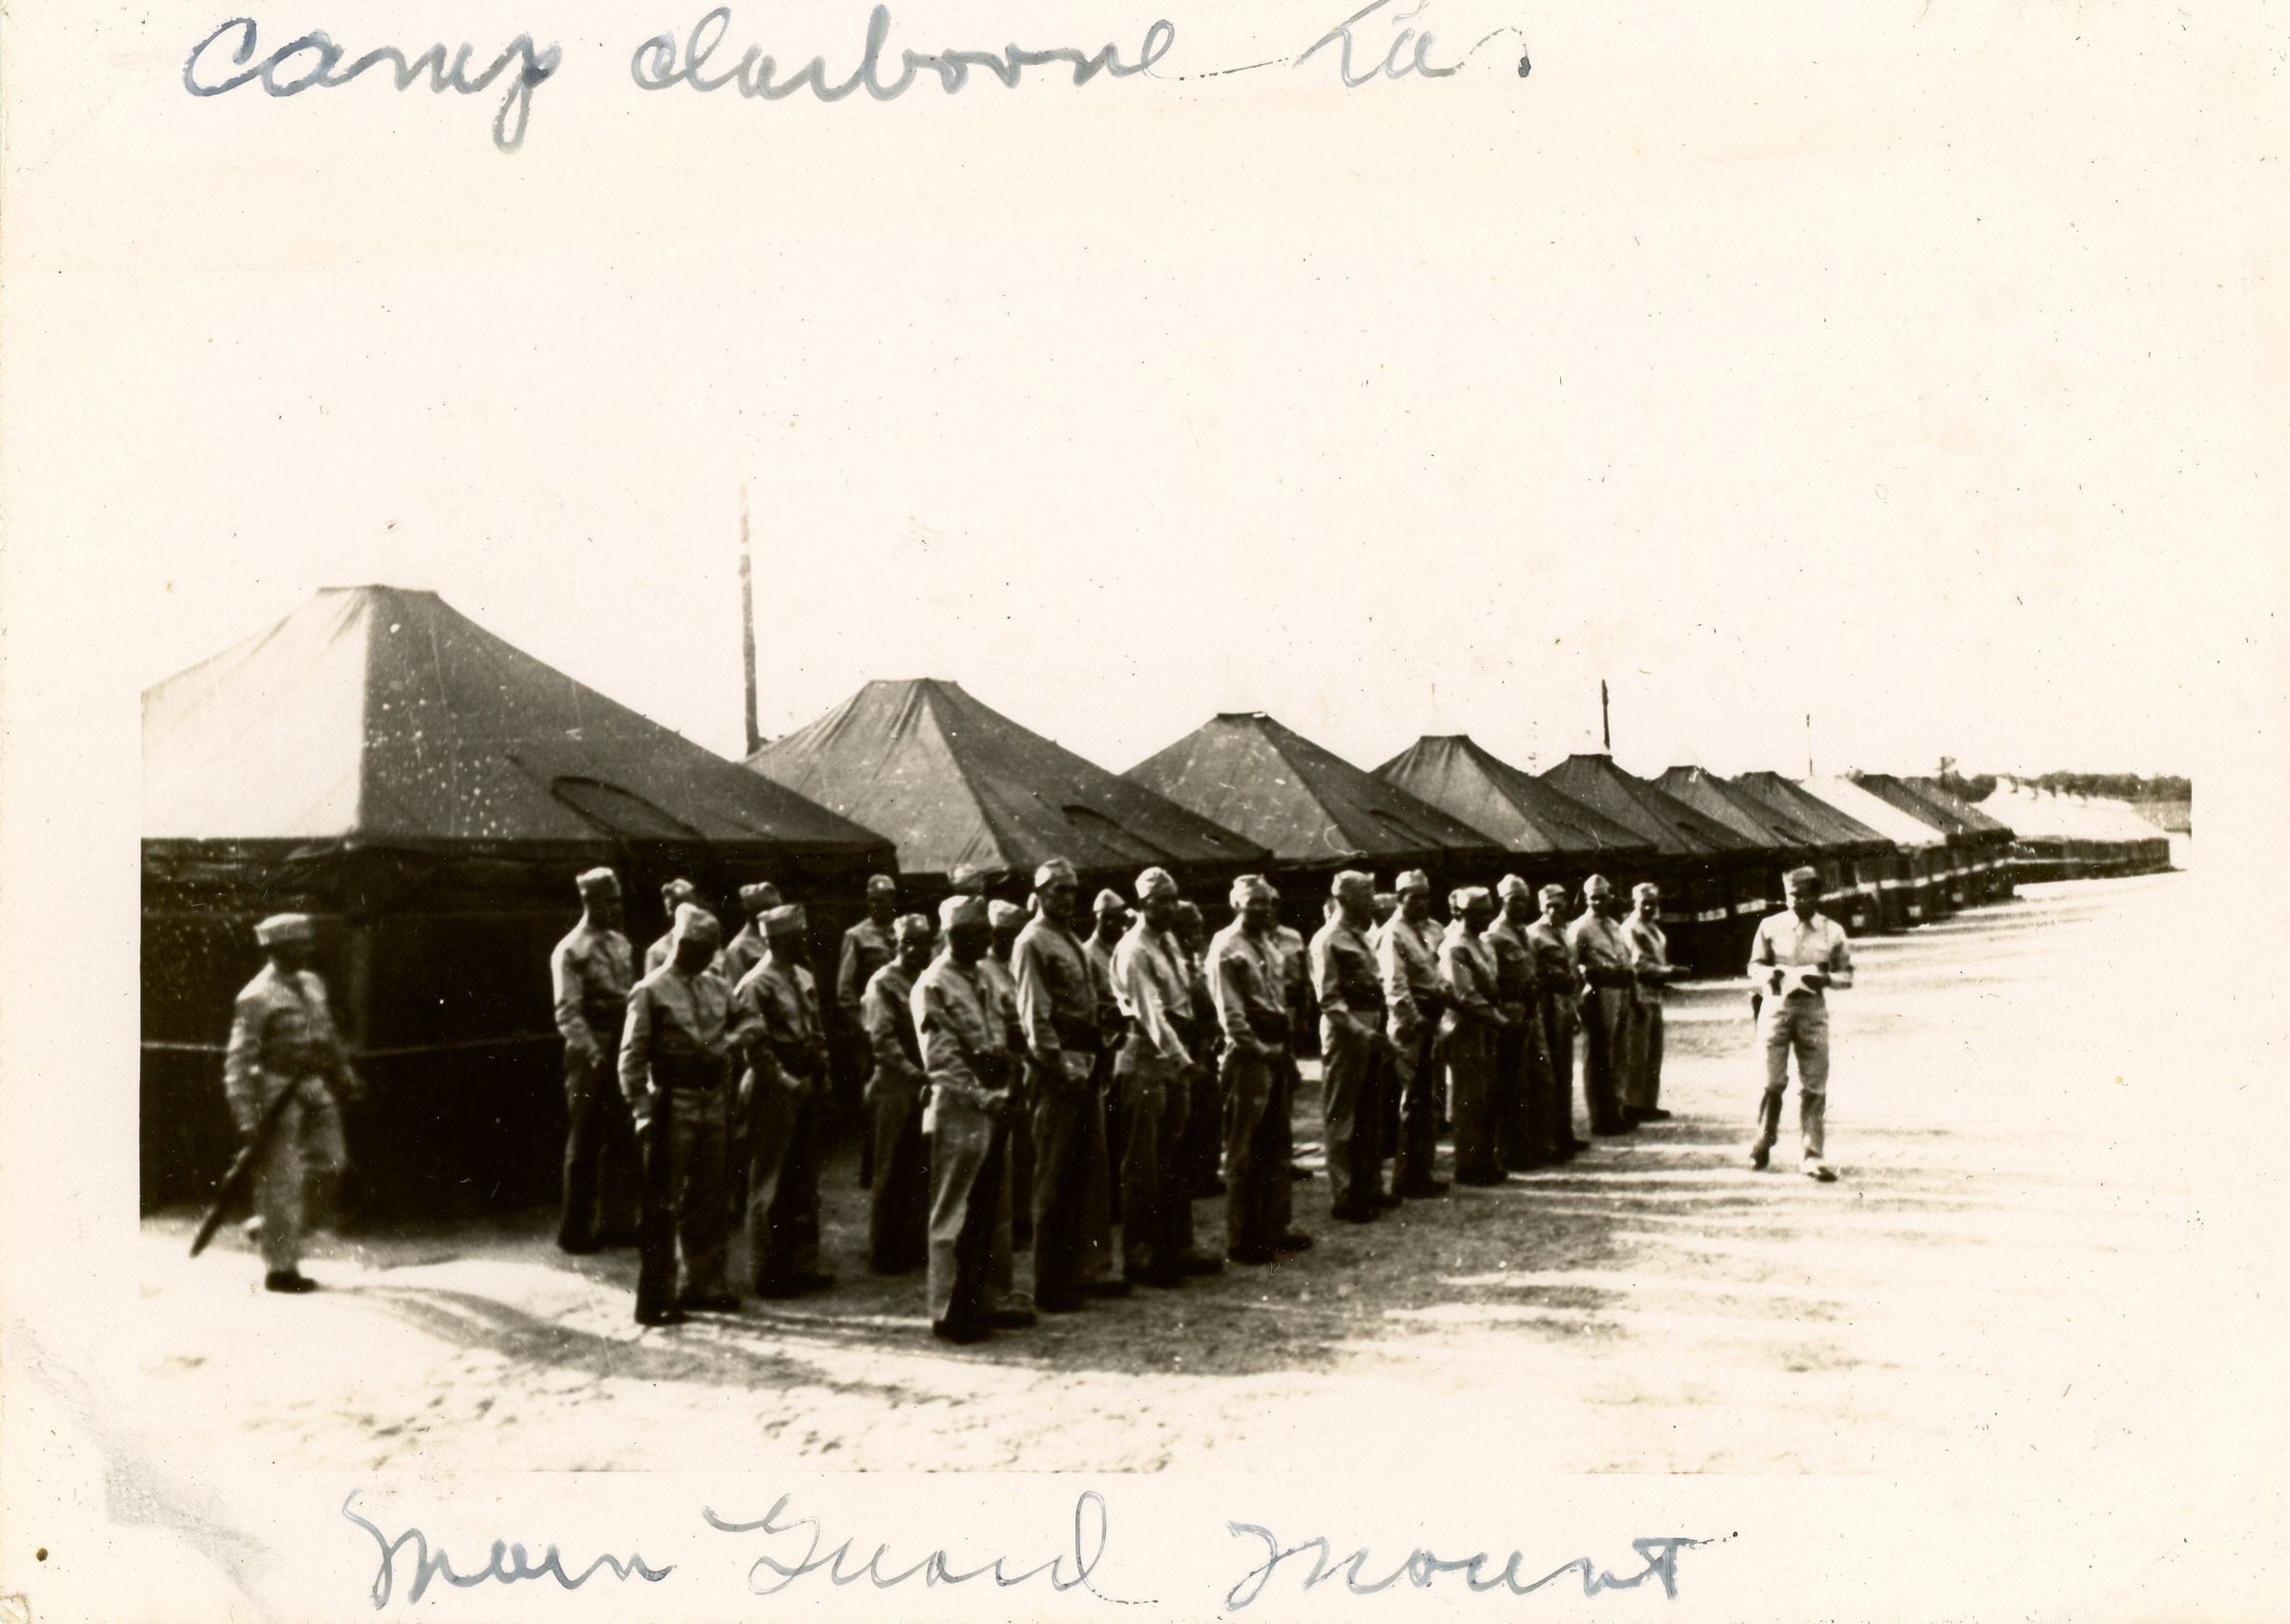 Camp Claiborne La.
Main Guard Mount